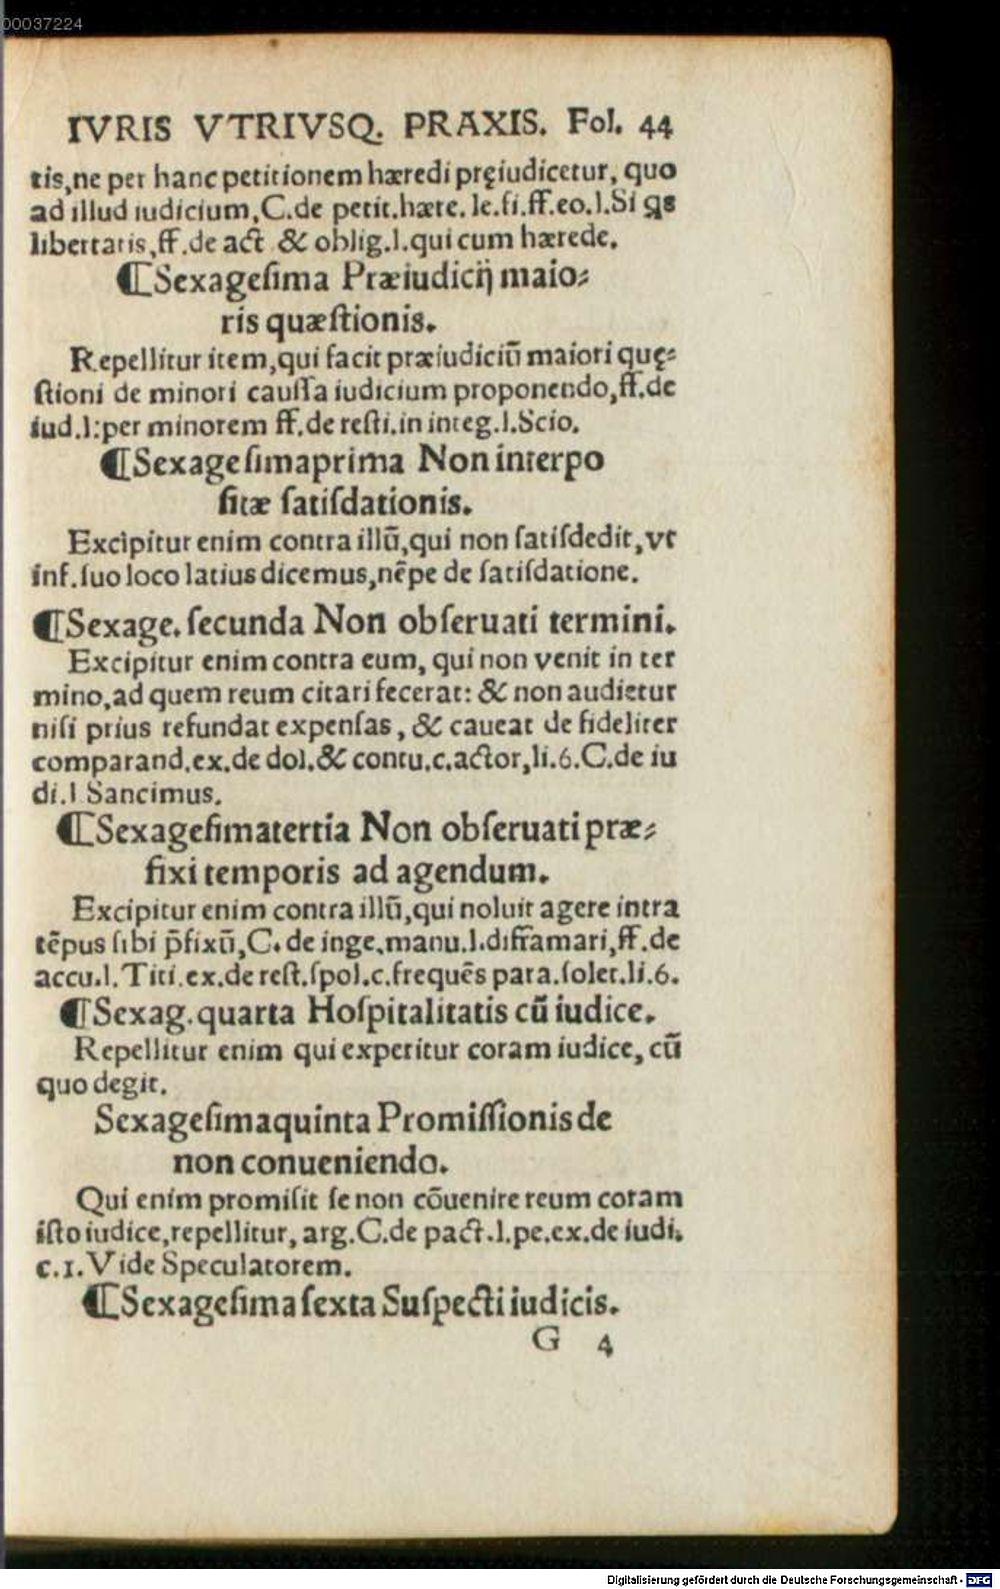 00037224
IVRIS VTRIVSQ. PRAXIS. Fol. 44
tis,ne per hanc petitionem hæredi pręiudicetur, quo
ad illud iudicium,C.de petit.hære. le.fi.ff.eo.l.Si qs
libertatis,ff.de act & oblig.l.qui cum hærede.
¶Sexageſima Præiudicij maio⸗
ris quæſtionis.
Repellitur item,qui facit præiudiciũ maiori quę⸗
ſtioni de minori cauſſa iudicium proponendo,ff.de
iud.l:per minorem ff.de reſti.in integ.l.Scio.
¶Sexageſimaprima Non interpo
ſitæ ſatiſdationis.
Excipitur enim contra illũ,qui non ſatiſdedit,vt
inf.ſuo loco latius dicemus,nẽpe de ſatiſdatione.
¶Sexage.ſecunda Non obſeruati termini.
Excipitur enim contra eum, qui non venit in ter
mino,ad quem reum citari fecerat: & non audietur
niſi prius refundat expenſas, & caueat de fideliter
comparand.ex.de dol.& contu.c.actor,li.6.C.de iu
di.l Sancimus.
¶Sexageſimatertia Non obſeruati præ⸗
fixi temporis ad agendum.
Excipitur enim contra illũ,qui noluit agere intra
tẽpus ſibi p̃fixũ,C.de inge.manu.l.diffamari,ff.de
accu.l.Titi.ex.de reſt.ſpol.c.frequẽs para.ſolet.li.6.
¶Sexag.quarta Hoſpitalitatis cũ iudice.
Repellitur enim qui experitur coram iudice, cũ
quo degit.
Sexageſimaquinta Promiſſionis de
non conueniendo.
Qui enim promiſit ſe non cõuenire reum coram
iſto iudice,repellitur, arg.C.de pact.l.pe.ex.de iudi.
c.1.Vide Speculatorem.
¶Sexageſima ſexta Suſpecti iudicis.
G 4
Digitalisierung gefördert durch die Deutsche Forschungsgemeinschaft - DFG